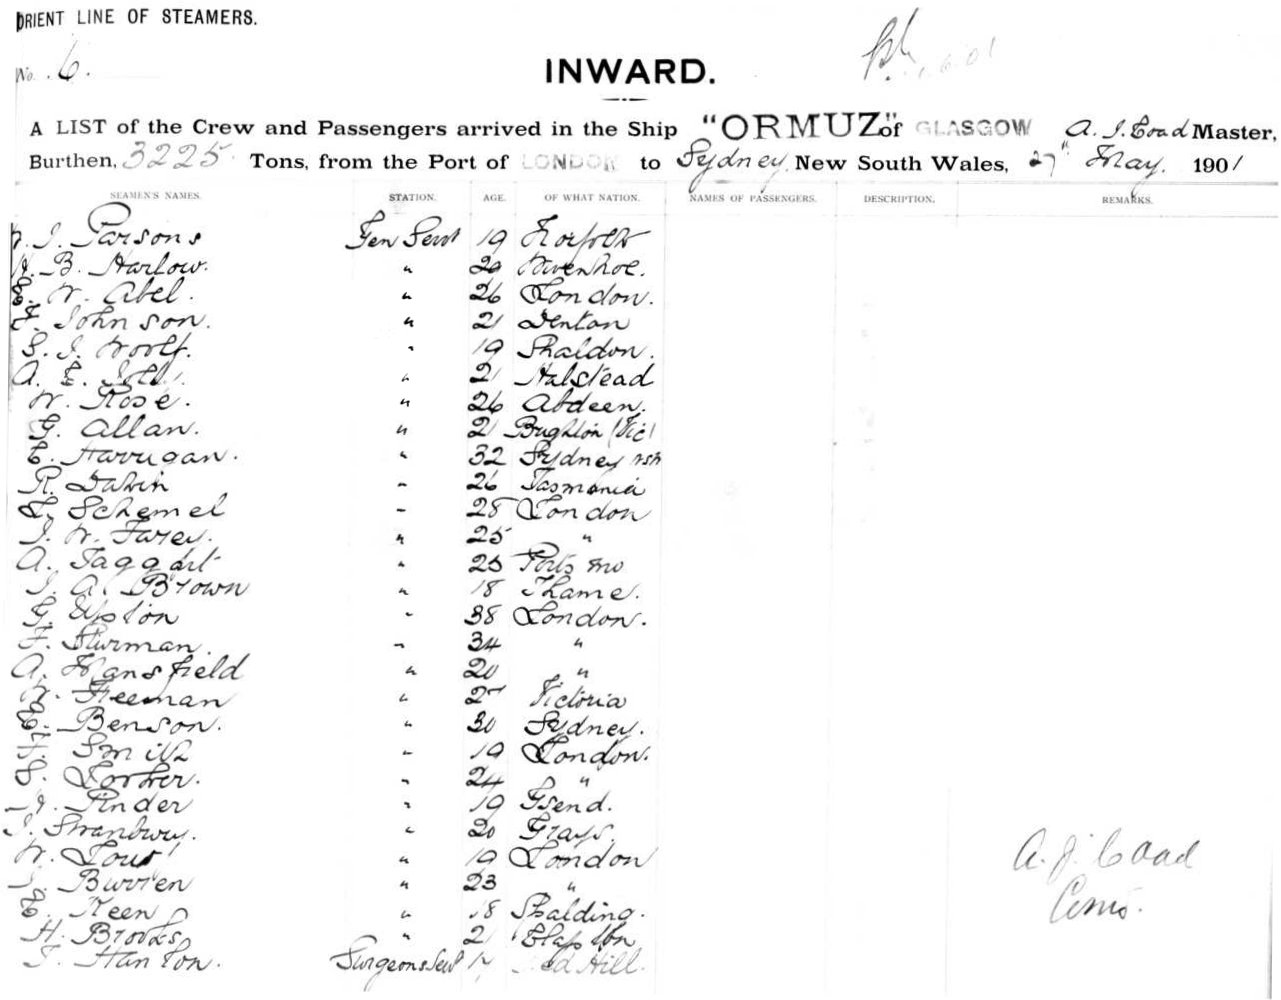 ORIENT LINE OF STEAMERS.
No. 6.
INWARD.
A LIST of the Crew and Passengers arrived in the Ship "ORMUZ" of GLASGOW A. J. Coad Master,
Burthen, 3225 Tons, from the Port of LONDON to Sydney, New South Wales, 27" May. 1901
SEAMEN'S NAMES. STATION. AGE. OF WHAT NATION. NAMES OF PASSENGERS. DESCRIPTION. REMARKS.
J. Parsons Gen Servt 19 Norfolk
B. Harlow. " 20 Wivenhoe.
E. W. Abel. " 26 London.
F. Johnson. " 21 Denton
S. J. Woolf. " 19 Shaldon.
A. E. " 21 Halstead
W. Rose. " 26 Abdeen.
G. Allan. " 21 Brighton (Vic)
E. Harrigan. " 32 Sydney NSW
R. Dakin " 26 Tasmania
L. Schemel " 28 London
J. W. " 25 "
A. Taggart " 25 Ports mo
J. A. Brown " 18 Thame.
G. Upton " 38 London.
F. Sturman. " 34 "
A. Mansfield " 20 "
W. Freeman " 27 Victoria
E. Benson. " 30 Sydney.
Smith " 19 London.
S. " 24 "
Pinder " 19 Gsend.
J. " 20 Grays.
W. " 19 London
J. " 23 "
E. Keen " 18 Spalding.
H. Brooks " 21 Clapton
J. Hanlon. Surgeons Servt Red Hill.
A. J. Coad